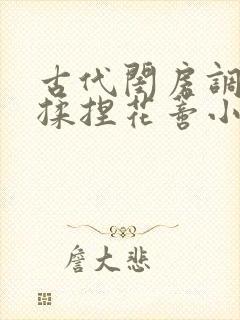 古代閨房調
揉捏花蒂小
詹大悲